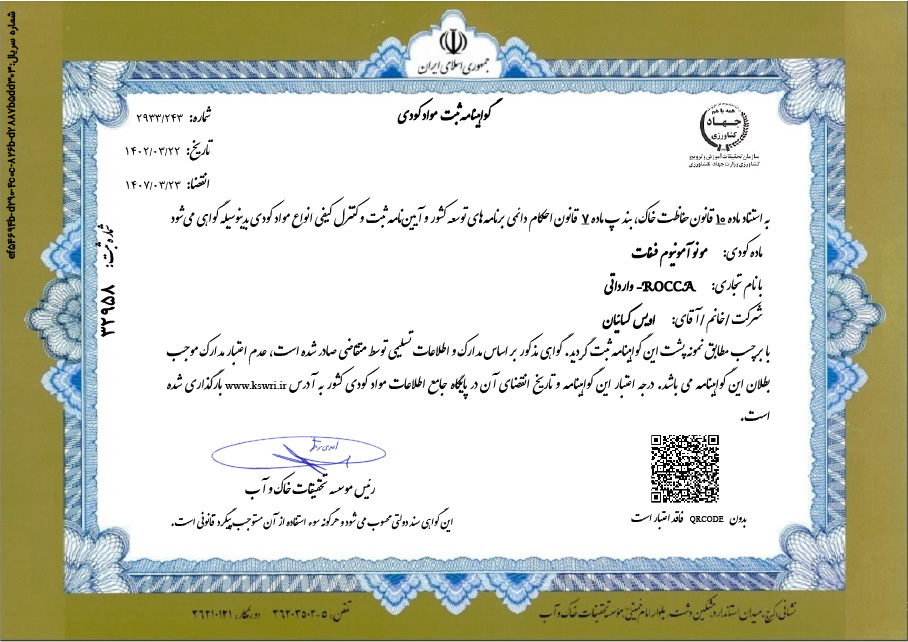 جمهوری اسلامی ایران
گواهینامه ثبت مواد کودی
شماره: ۲۹۳۳/۲۴۳
تاریخ: ۱۴۰۲/۰۳/۲۲
انقضا: ۱۴۰۷/۰۳/۲۳
همه با هم
جهاد
کشاورزی
سازمان تحقیقات، آموزش و ترویج
کشاورزی وزارت جهاد کشاورزی
به استناد ماده ۱۰ قانون حفاظت خاک، بند پ ماده ۷ قانون احکام دائمی برنامه های توسعه کشور و آیین نامه ثبت و کنترل کیفی انواع مواد کودی بدینوسیله گواهی می شود
ماده کودی: مونو آمونیوم فسفات
با نام تجاری: ROCCA- وارداتی
شرکت / خانم / آقای: اویس کسائیان
با برچسب مطابق نمونه پشت این گواهینامه ثبت گردید. گواهی مذکور بر اساس مدارک و اطلاعات تسلیمی توسط متقاضی صادر شده است، عدم اعتبار مدارک موجب
بطلان این گواهینامه می باشد. درجه اعتبار این گواهینامه و تاریخ انقضای آن در پایگاه جامع اطلاعات مواد کودی کشور به آدرس www.kswri.ir بارگذاری شده
است.
رئیس موسسه تحقیقات خاک و آب
بدون QRCODE فاقد اعتبار است
این گواهی سند دولتی محسوب می شود و هرگونه سوء استفاده از آن مستوجب پیگرد قانونی است.
شماره ثبت: ۳۲۹۵۸
شماره سریال:
نشانی: کرج، میدان استاندارد، مشکین دشت، بلوار امام خمینی، موسسه تحقیقات خاک و آب
تلفن: ۵-۳۶۲۰۳۵۰۳ دورنگار: ۳۶۲۱۰۱۲۱